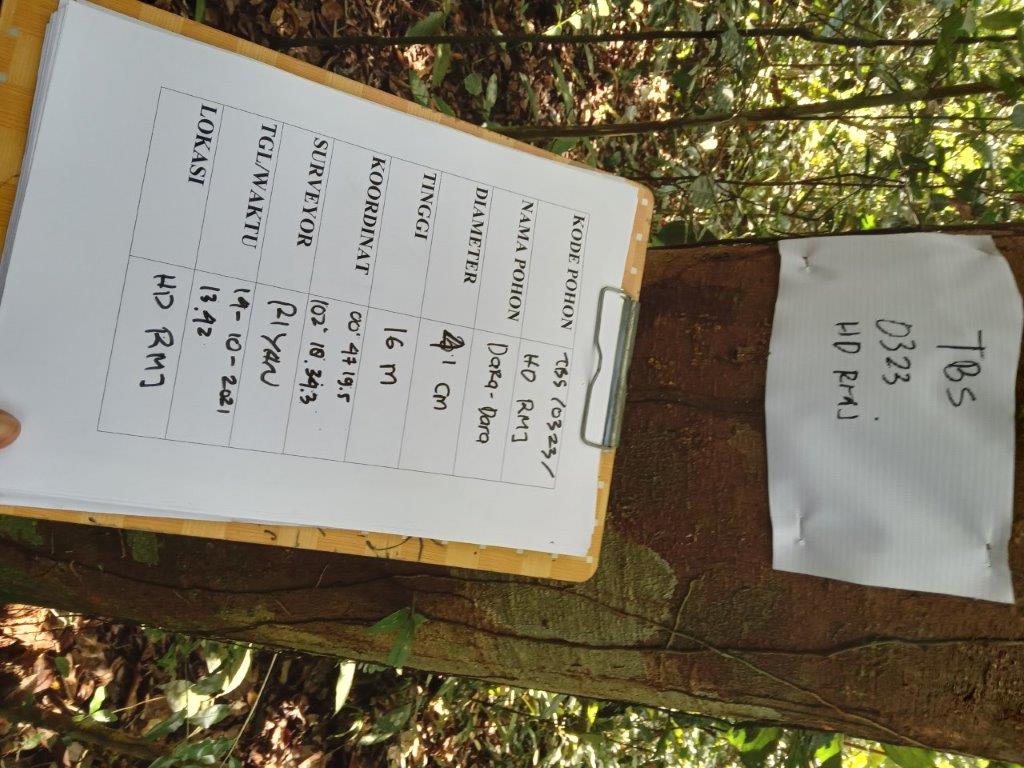 TBS
0323
HD RMJ
KODE POHON TBS /0323/
HD RMJ
NAMA POHON DaRa-Dara
DIAMETER 41 CM
TINGGI 16 M
KOORDINAT 00° 47 19.5
102° 18.34.3
SURVEYOR RIYAN
TGL/WAKTU 14-10-2021
13.42
LOKASI HD RMJ